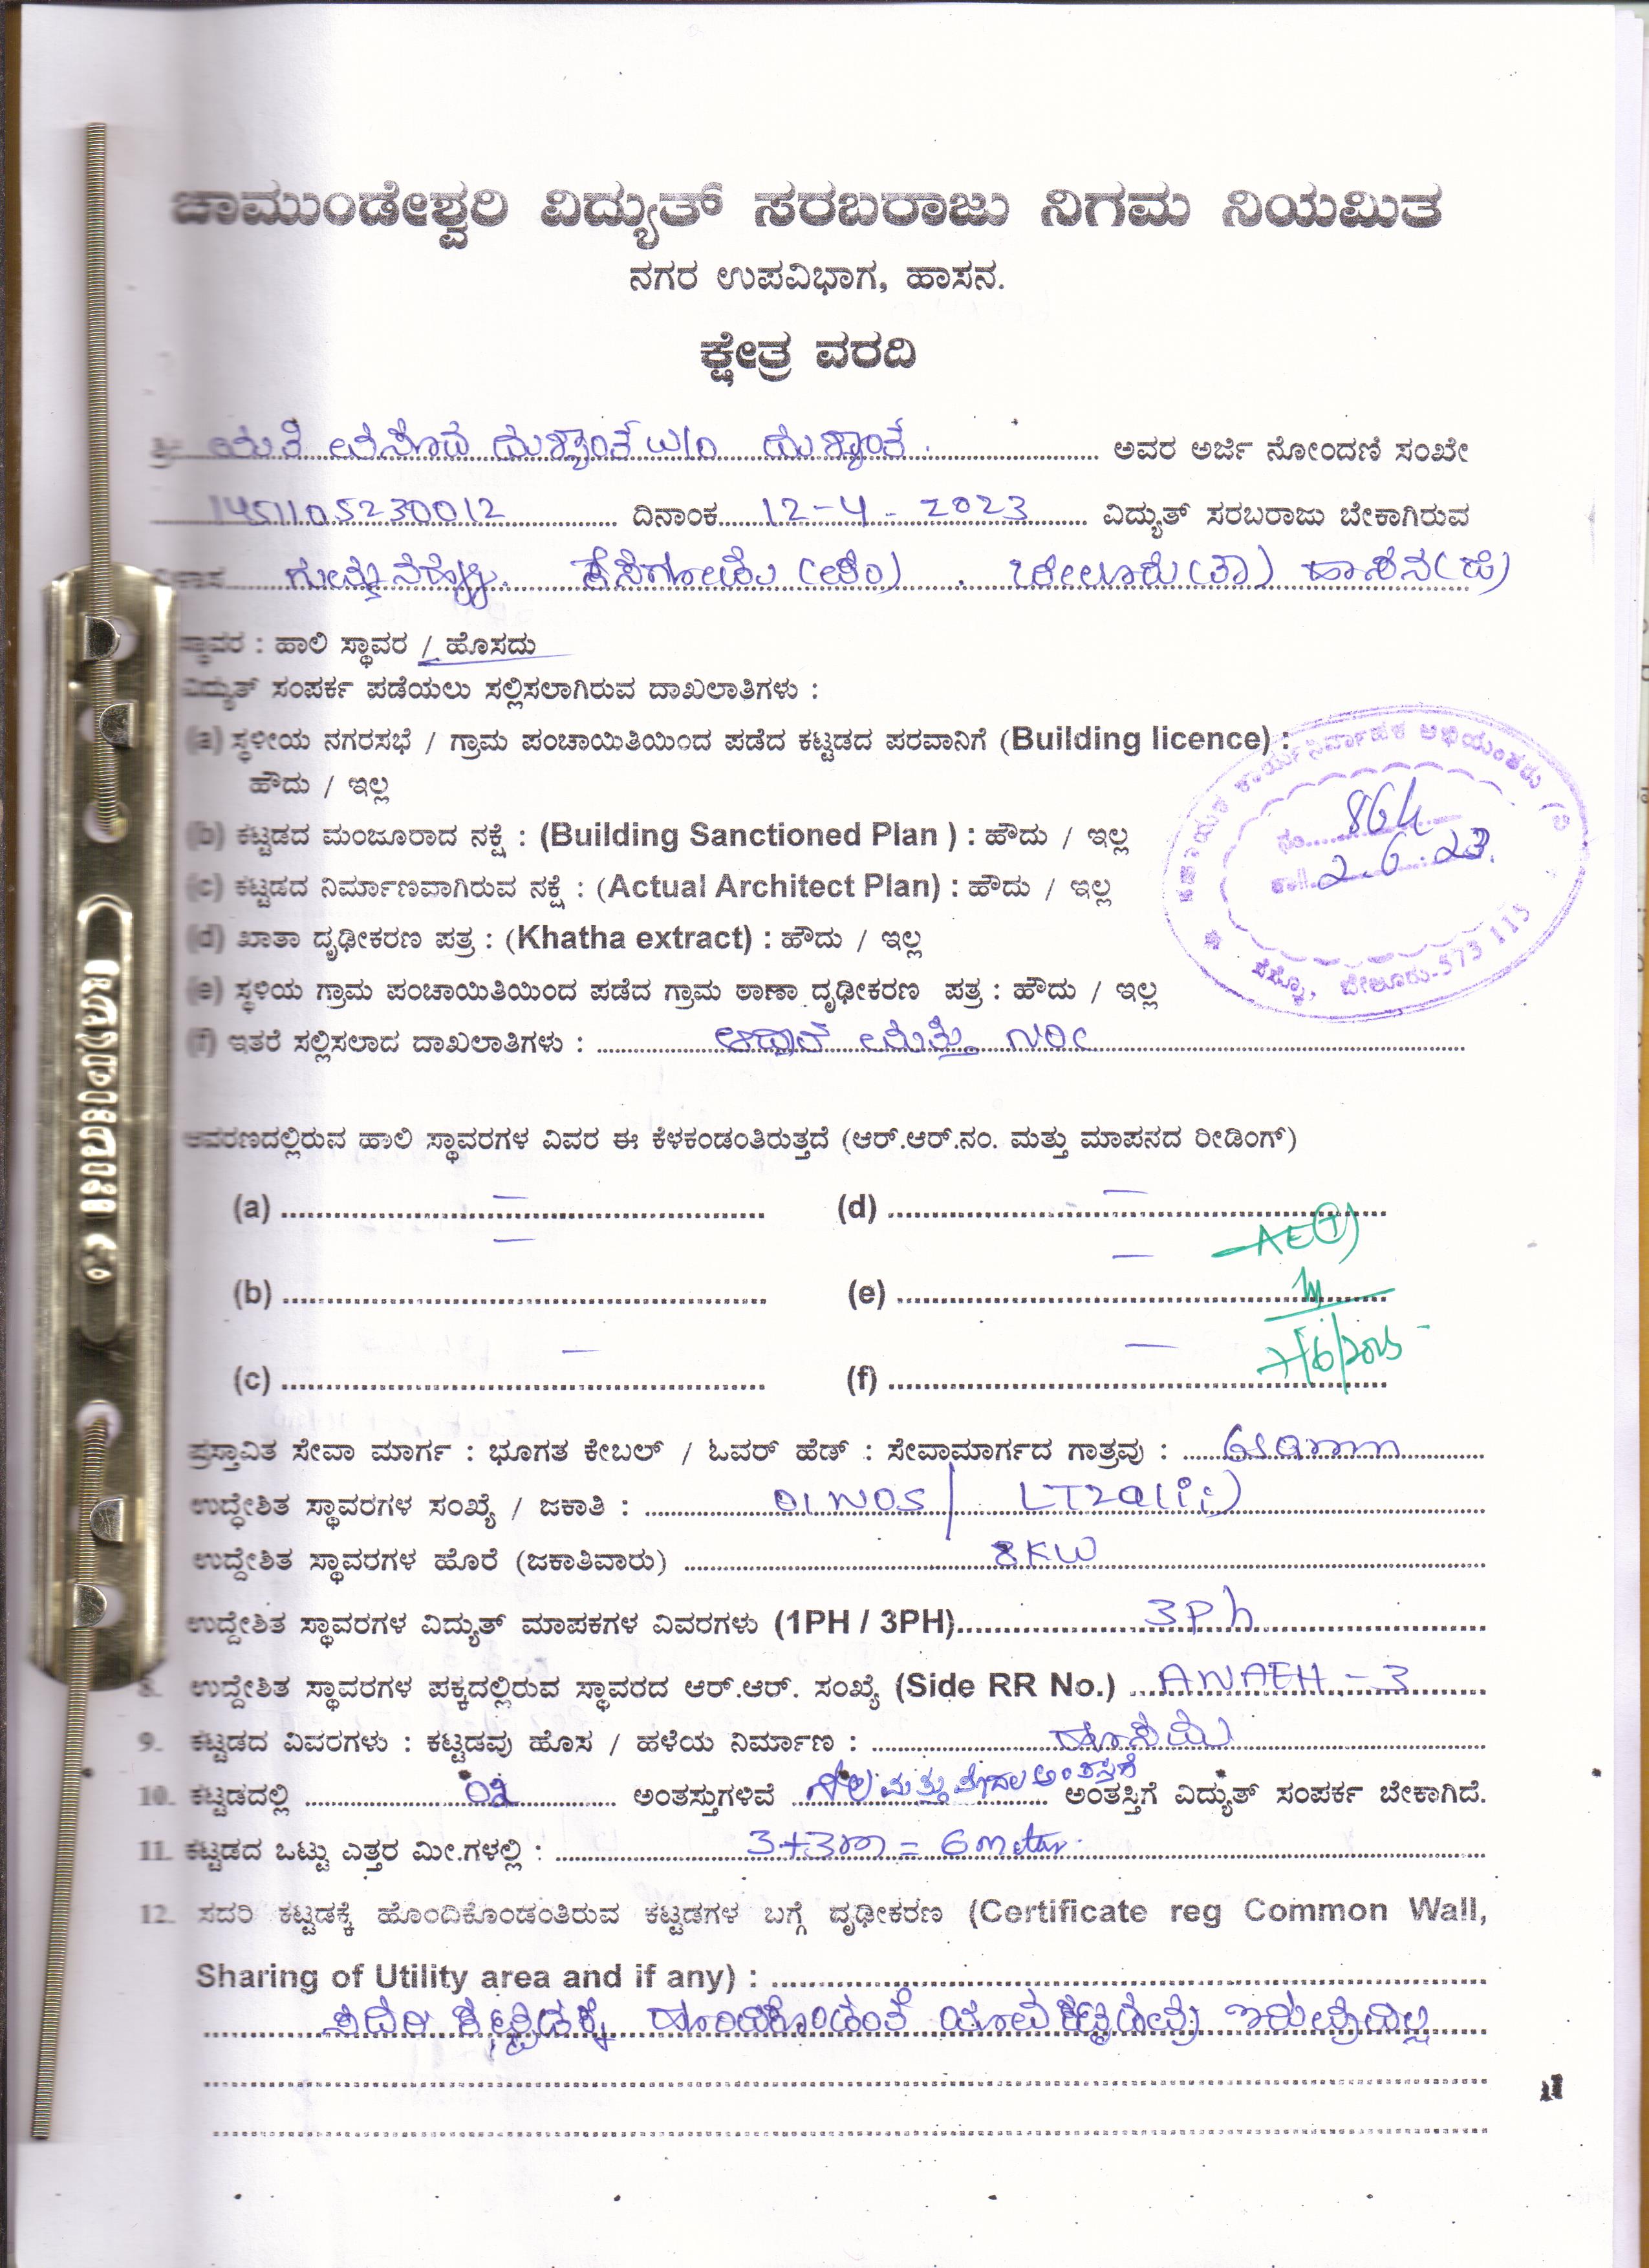 ಚಾಮುಂಡೇಶ್ವರಿ ವಿದ್ಯುತ್ ಸರಬರಾಜು ನಿಗಮ ನಿಯಮಿತ
ನಗರ ಉಪವಿಭಾಗ, ಹಾಸನ.
ಕ್ಷೇತ್ರ ವರದಿ
ದುಶ್ಯಾಂತ w/o ದುಶ್ಯಾಂತ. ಅವರ ಅರ್ಜಿ ನೋಂದಣಿ ಸಂಖೇ
1451105230012 ದಿನಾಂಕ 12-4-2023 ವಿದ್ಯುತ್ ಸರಬರಾಜು ಬೇಕಾಗಿರುವ
ಬೇಲೂರು (ತಾ) ಹಾಸನ (ಜಿ)
ಸ್ಥಾವರ : ಹಾಲಿ ಸ್ಥಾವರ / ಹೊಸದು
ವಿದ್ಯುತ್ ಸಂಪರ್ಕ ಪಡೆಯಲು ಸಲ್ಲಿಸಲಾಗಿರುವ ದಾಖಲಾತಿಗಳು :
(a) ಸ್ಥಳೀಯ ನಗರಸಭೆ / ಗ್ರಾಮ ಪಂಚಾಯಿತಿಯಿಂದ ಪಡೆದ ಕಟ್ಟಡದ ಪರವಾನಿಗೆ (Building licence) :
ಹೌದು / ಇಲ್ಲ
(b) ಕಟ್ಟಡದ ಮಂಜೂರಾದ ನಕ್ಷೆ : (Building Sanctioned Plan ) : ಹೌದು / ಇಲ್ಲ
(c) ಕಟ್ಟಡದ ನಿರ್ಮಾಣವಾಗಿರುವ ನಕ್ಷೆ : (Actual Architect Plan) : ಹೌದು / ಇಲ್ಲ
(d) ಖಾತಾ ದೃಢೀಕರಣ ಪತ್ರ : (Khatha extract) : ಹೌದು / ಇಲ್ಲ
(e) ಸ್ಥಳಿಯ ಗ್ರಾಮ ಪಂಚಾಯಿತಿಯಿಂದ ಪಡೆದ ಗ್ರಾಮ ಠಾಣಾ ದೃಢೀಕರಣ ಪತ್ರ : ಹೌದು / ಇಲ್ಲ
(f) ಇತರೆ ಸಲ್ಲಿಸಲಾದ ದಾಖಲಾತಿಗಳು : ಆಧಾರ ಮತ್ತು NOC
ಸಹಾಯಕ ಕಾರ್ಯನಿರ್ವಾಹಕ ಅಭಿಯಂತರು (ವಿ
ನಂ. 864
2.6.23.
ಸೆಸ್ಕ್, ಬೇಲೂರು-573 115
ಆವರಣದಲ್ಲಿರುವ ಹಾಲಿ ಸ್ಥಾವರಗಳ ವಿವರ ಈ ಕೆಳಕಂಡಂತಿರುತ್ತದೆ (ಆರ್.ಆರ್.ನಂ. ಮತ್ತು ಮಾಪನದ ರೀಡಿಂಗ್)
(a) – (d) –
AE(T)
(b) – (e) –
(c) – (f) –
ಪ್ರಸ್ತಾವಿತ ಸೇವಾ ಮಾರ್ಗ : ಭೂಗತ ಕೇಬಲ್ / ಓವರ್ ಹೆಡ್ : ಸೇವಾಮಾರ್ಗದ ಗಾತ್ರವು : 6sqmm
ಉದ್ದೇಶಿತ ಸ್ಥಾವರಗಳ ಸಂಖ್ಯೆ / ಜಕಾತಿ : 01 NOS / LT2a(ii)
ಉದ್ದೇಶಿತ ಸ್ಥಾವರಗಳ ಹೊರೆ (ಜಕಾತಿವಾರು) 8KW
ಉದ್ದೇಶಿತ ಸ್ಥಾವರಗಳ ವಿದ್ಯುತ್ ಮಾಪಕಗಳ ವಿವರಗಳು (1PH / 3PH) 3Ph
8. ಉದ್ದೇಶಿತ ಸ್ಥಾವರಗಳ ಪಕ್ಕದಲ್ಲಿರುವ ಸ್ಥಾವರದ ಆರ್.ಆರ್. ಸಂಖ್ಯೆ (Side RR No.) ANAEH-3
9. ಕಟ್ಟಡದ ವಿವರಗಳು : ಕಟ್ಟಡವು ಹೊಸ / ಹಳೆಯ ನಿರ್ಮಾಣ :
10. ಕಟ್ಟಡದಲ್ಲಿ 02 ಅಂತಸ್ತುಗಳಿವೆ ನೆಲ ಮತ್ತು ಮೊದಲ ಅಂತಸ್ತಿಗೆ ಅಂತಸ್ತಿಗೆ ವಿದ್ಯುತ್ ಸಂಪರ್ಕ ಬೇಕಾಗಿದೆ.
11. ಕಟ್ಟಡದ ಒಟ್ಟು ಎತ್ತರ ಮೀ.ಗಳಲ್ಲಿ : 3+3m = 6 meter.
12. ಸದರಿ ಕಟ್ಟಡಕ್ಕೆ ಹೊಂದಿಕೊಂಡಂತಿರುವ ಕಟ್ಟಡಗಳ ಬಗ್ಗೆ ದೃಢೀಕರಣ (Certificate reg Common Wall,
Sharing of Utility area and if any) :
ಸದರಿ ಕಟ್ಟಡಕ್ಕೆ ಹೊಂದಿಕೊಂಡಂತೆ ಯಾವ ಕಟ್ಟಡವು ಇರುವುದಿಲ್ಲ